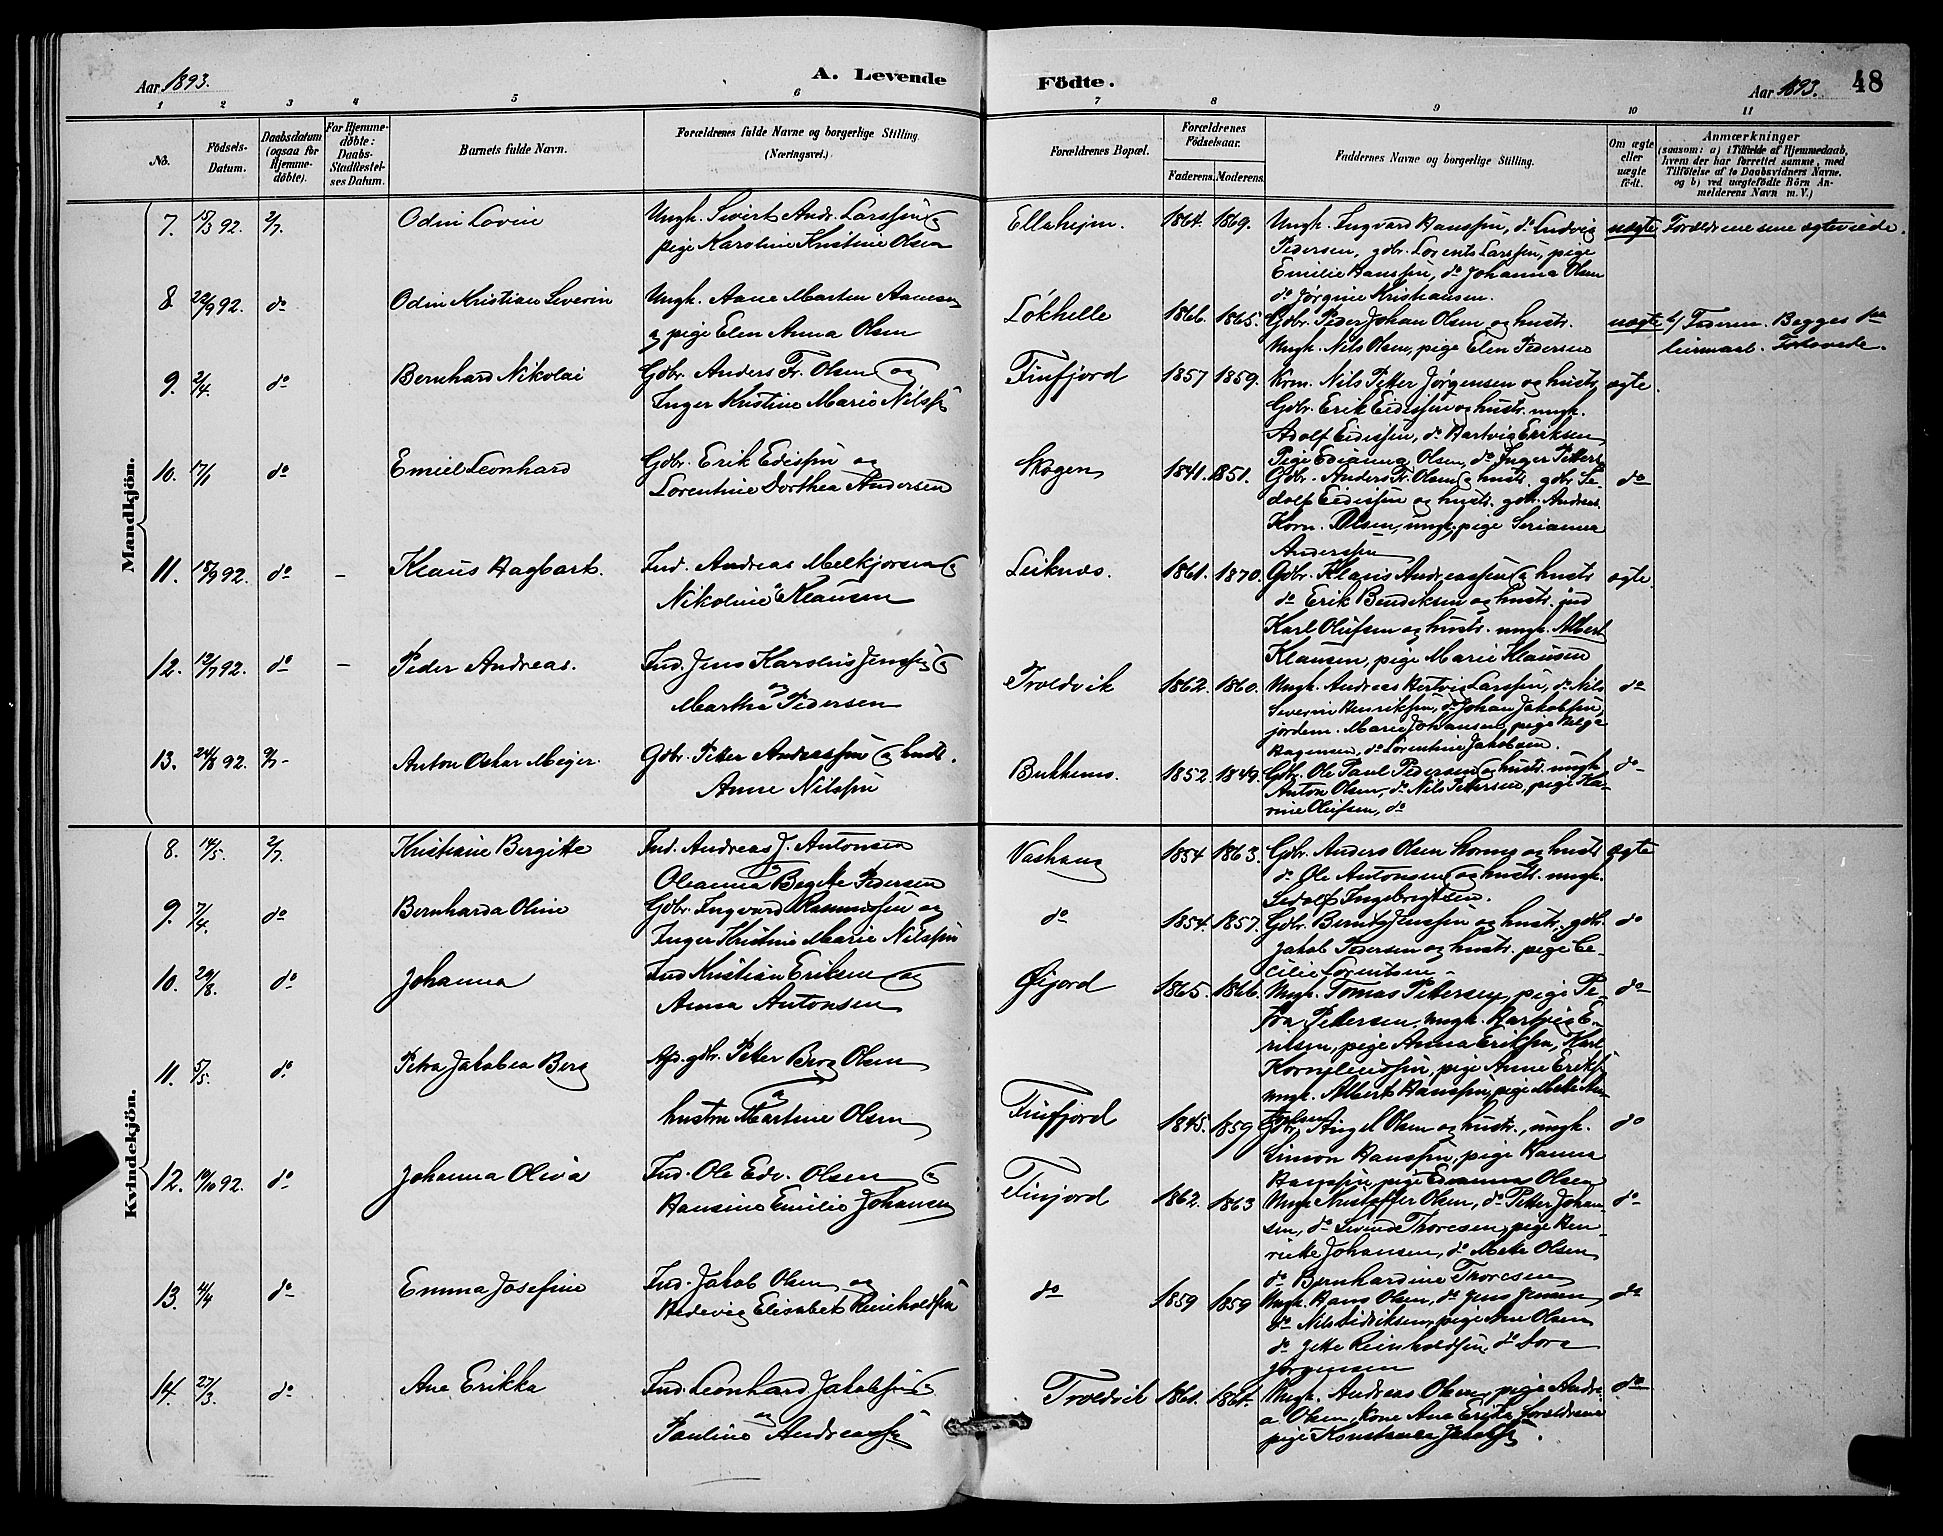 Aar 1893.
A. Levende
Födte.
Aar 1893.
48
1 2 3 4 5 6 7 8 9 10 11
No.
Födsels-Datum.
Daabsdatum (ogsaa for Hjemme-döbte).
For Hjemme-döbte: Daabs-Stadfæstel-ses Datum.
Barnets fulde Navn.
Forældrenes fulde Navne og borgerlige Stilling.
(Næringsvei.)
Forældrenes Bopæl.
Forældrenes Födselsaar.
Faderens. Moderens.
Faddernes Navne og borgerlige Stilling.
Om ægte eller uægte födt.
Anmærkninger
(saasom: a) i Tilfælde af Hjemmedaab,
hvem der har forrettet samme, med
Tilföielse af to Daabsvidners Navne.
og b) ved uægtefödte Börn An-
melderens Navn m. V.)
Mandkjön.
7. 15/3 92. 2/7 Odin Lovin
Ungk. Sivert Andr. Larssen og
pige Karoline Kristine Olsen
Ellahejm. 1864. 1869.
Ungk. Ingvard Hanssen, do Ludvig
Pedersen, gbr. Lorents Larssen, pige
Emilie Hanssen, do Johanna Olsen
do Jørgine Kristiansen.
uægte Forældrene ene agteviede.
8. 22/9 92. do Odin Kristian Severin
Ungk. Aane Marten Aanesen
og pige Elen Anna Olsen
Løkhelle 1866. 1865.
Gbr. Peder Johan Olsen og hustr.
Ungk. Nils Olsen, pige Elen Pedersen
uægte Faderen. Begges
leiermaal. Forlovede.
9. 2/4. do Bernhard Nikolai
Gbr. Anders Fr. Olsen og
Inger Kristine Marie Nilss.
Finfjord 1857 1859.
Krm. Nils Petter Jørgensen og hustr.
Gbr. Erik Eidissen og hustr. ungk.
Adolf Eidissen, do Hartvig Eriksen
Pige Edianna Olsen, do Inger Petters.
ægte.
10. 17/1 do Emiel Leonhard
Gbr. Erik Edissen og
Lorentine Dorthea Andersen
Skogen 1841. 1851.
Gbr. Anders Fr. Olsen og hustr. gbr. Se-
dolf Eidissen og hustr. gbr. Andreas
Korn. Olsen, ungk, pige Serianna
Anderssen
do
11. 18/9 92. do - Klaus Hagbart.
Ind. Andreas Melkjorsen og
Nikoline Klausen
Leiknes. 1861. 1870.
Gbr. Klaus Andreassen og hustr.
do Erik Bendiksen og hustr. ind
Karl Olufsen og hustr. ungk. Albert
Klausen, pige Marie Klausen
ægte.
12. 12/7 92. do - Peder Andreas.
Ind. Jens Karelius Jenssen og
Martha Pedersen
Troldvik 1862. 1860.
Ungk. Andreas Hertvig Larssen, do Nils
Severin Henriksen, do Johan Jakobsen,
jordem. Marie Johansen, pige Helga
Hagensen, do Lorentine Jakobsen.
do
13. 24/8 92. 9/7- Anton Oskar Mejer.
Gbr. Petter Andreassen og hustr.
Anne Nilssen
Bukkenes. 1852. 1849.
Gbr. Ole Paul Pedersen og hustr. ungk.
Anton Olsen, do Nils Pettersen, pige Ka-
rine Olufsen, do
do
Kvindekjön.
8. 14/5. 2/7 Kristiane Bergitte
Ind. Andreas J. Antonsen
og
Oleanna Begitte Pedersen
Vashaug 1854 1863.
Gbr. Anders Olsen Kornes og hustr
do Ole Antonsen og hustr. ungk.
Sedolf Ingebrigtsen.
ægte
9. 7/4. do Bernharda Oline
Gbr. Ingvard Rasmussen og
Inger Kristine Marie Nilssen
do 1854. 1857.
Gbr. Bernt Jenssen og hustr. gbr.
Jakob Pedersen og hustr. pige Ce-
cilie Lorentsen -
do
10. 29/8. do Johanna
Ind Kristian Eriksen og
Anna Antonsen
Øijord 1865. 1866.
Ungk. Tomas Pettersen, pige Pe-
tra Pettersen. ungk. Hartvig E-
riksen, pige Anna Eriksen, Karl
Korneliussen, pige Anne Eriks.
ungk. Albert Hanssen, pige Mette
do
11. 5/5. do Petra Jakobea Berg
Afd. gbr. Petter Berg Olsen
og
hustru Martine Olsen
Finfjord 1845. 1859
Gbr. Angel Olsen og hustr., ungk.
Simon Hanssen, pige Hanna
Hanssen, pige Edianna Olsen
do
12. 10/10 92. do Johanna Oliva
Ind. Ole Edv. Olsen og
Hansine Emilie Johansen
Finjord 1862. 1863
Ungk Kristoffer Olsen, do Petter Johan-
sen, do Sevrin Thoresen, pige Hen-
rikke Johansen, do Mette Olsen
do Bernhardine Thoresen
do
13. 4/4 do Emma Josefine
Ind. Jakob Olsen og
Hedevig Elisabet Reinholdsen
do 1859 1859
Ungk. Hans Olsen, do Jens Jensen
do Nils Didriksen, pige Ane Olsen
do Jette Reinholdsen, do Dora
Jørgensen
do
14. 27/3. do Ane Erikka
Ind. Leonhard Jakobsen
og
Pauline Andreass.
Troldvik 1861. 1864.
Ungk. Andreas Olsen, pige Andre-
a Olsen, kone Ane Erika forældrene
pige Konstanse Jakobs.
do